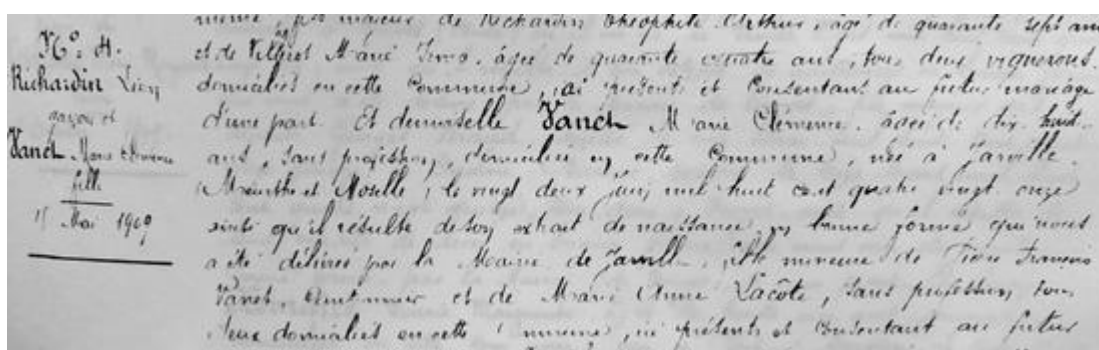 N°. 4.
Richardin Léon
garçon et
Vanel Marie Clémence
fille
15 Mai 1909
mineur, fils majeur de Richardin Théophile Arthur, âgé de quarante sept ans
et de Marie âgée de quarante quatre ans, tous deux vignerons,
domiciliés en cette Commune, ici présents et Consentant au futur mariage
d'une part. Et demoiselle Vanel Marie Clémence, âgée de dix huit
ans, sans profession, domiciliée en cette Commune, née à Jarville
Meurthe et Moselle, le vingt deux mil huit cent quatre vingt onze
ainsi qu'il résulte de son extrait de naissance en bonne forme qui nous
a été délivré par la Mairie de Jarville, fille mineure de François
Vanel, et de Marie Anne Lacôte, sans profession, tous
deux domiciliés en cette Commune, ici présents et Consentant au futur